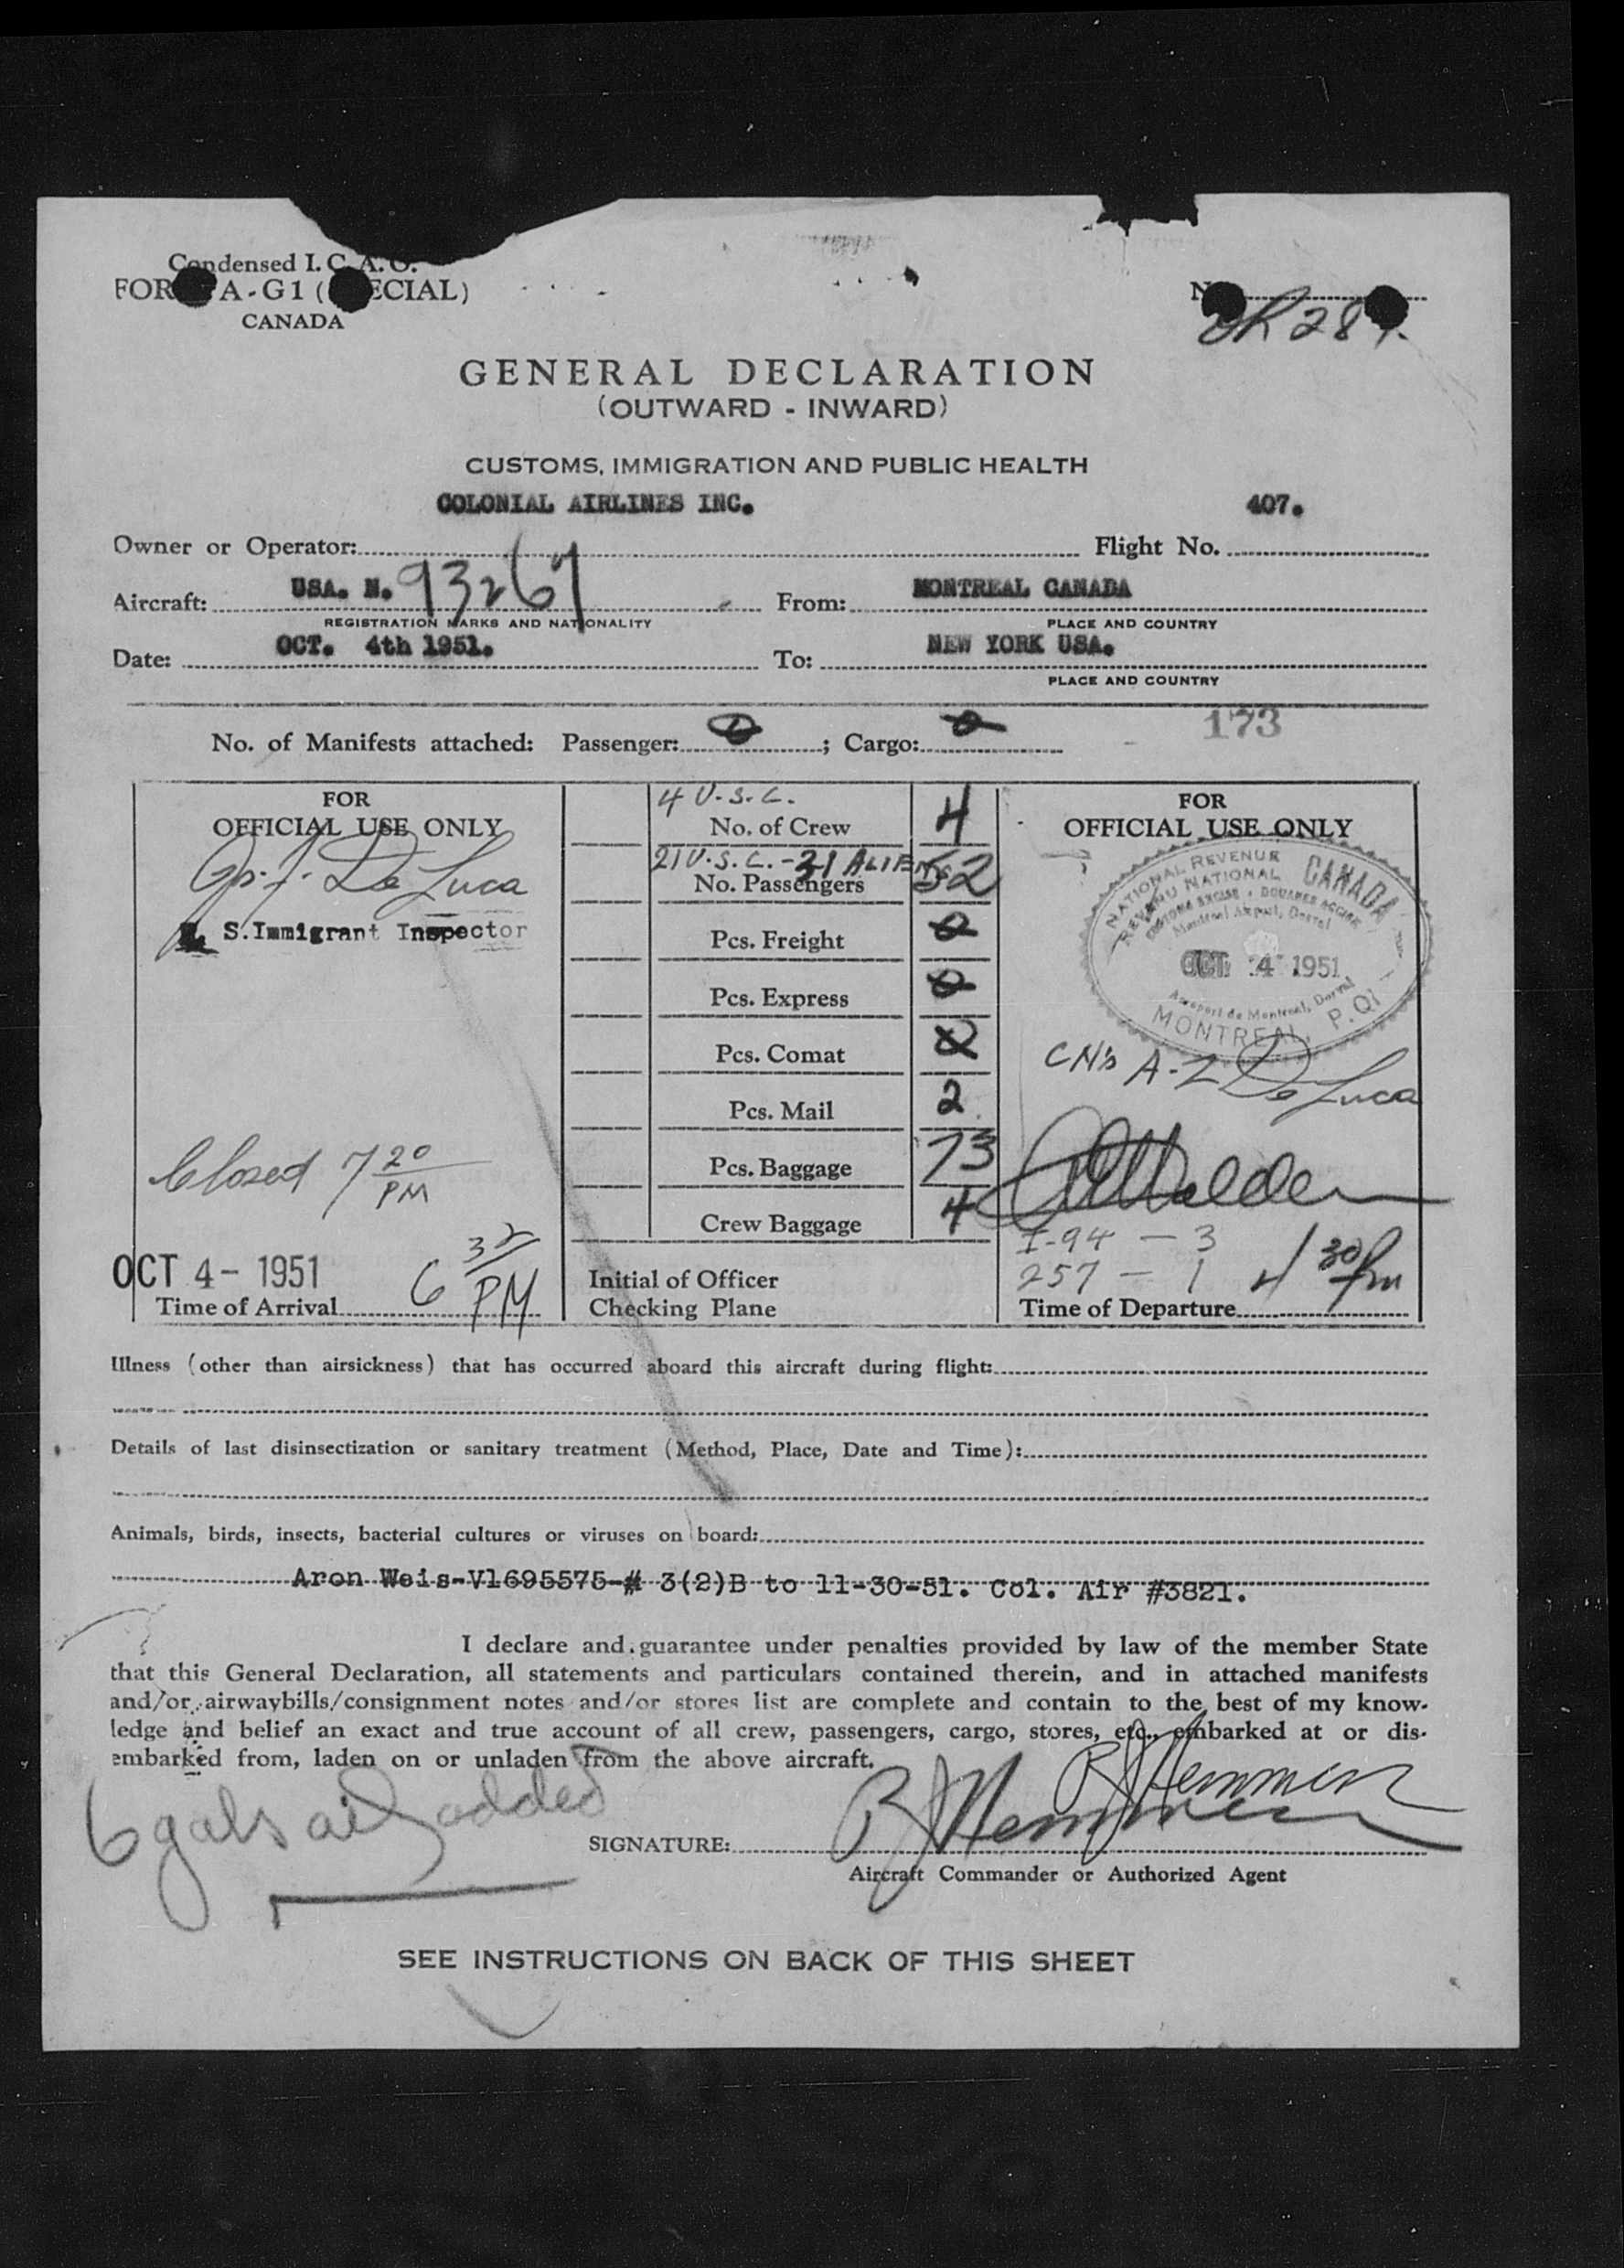 Condensed I. C. A. O.
A-G1 (
CANADA
28
GENERAL DECLARATION
(OUTWARD - INWARD)
CUSTOMS, IMMIGRATION AND PUBLIC HEALTH
COLONIAL AIRLINES INC. 407.
Owner or Operator: Flight No.
Aircraft: USA. N. 93267 From: MONTREAL CANADA
REGISTRATION MARKS AND NATIONALITY PLACE AND COUNTRY
Date: OCT. 4th 1951. To: NEW YORK USA.
PLACE AND COUNTRY
173
No. of Manifests attached: Passenger: 0; Cargo: 0
FOR
OFFICIAL USE ONLY
De Luca
S. Immigrant Inspector
Closed 7 20 PM
OCT 4 - 1951
6 32 PM
Time of Arrival
4 U.S.C.
No. of Crew 4
21 U.S.C. - 31 ALIENS
No. Passengers 52
Pcs. Freight 0
Pcs. Express 0
Pcs. Comat 0
Pcs. Mail 2
Pcs. Baggage 73
Crew Baggage 4
Initial of Officer
Checking Plane
FOR
OFFICIAL USE ONLY
NATIONAL REVENUE CANADA
REVENU NATIONAL
CUSTOMS EXCISE • DOUANES ACCISE
Montreal Airport, Dorval
OCT 4 1951
Aeroport de Montreal, Dorval
MONTREAL, P.Q.
CN's A-Z De Luca
I-94 - 3
257 - 1
4 30 Pm
Time of Departure
Illness (other than airsickness) that has occurred aboard this aircraft during flight:
Details of last disinsectization or sanitary treatment (Method, Place, Date and Time):
Animals, birds, insects, bacterial cultures or viruses on board:
Aron Weis-V1695575-# 3(2)B to 11-30-51. Col. Air #3821.
I declare and guarantee under penalties provided by law of the member State
that this General Declaration, all statements and particulars contained therein, and in attached manifests
and/or airwaybills/consignment notes and/or stores list are complete and contain to the best of my know-
ledge and belief an exact and true account of all crew, passengers, cargo, stores, etc., embarked at or dis-
embarked from, laden on or unladen from the above aircraft.
6 gals oil added
SIGNATURE:
Aircraft Commander or Authorized Agent
SEE INSTRUCTIONS ON BACK OF THIS SHEET